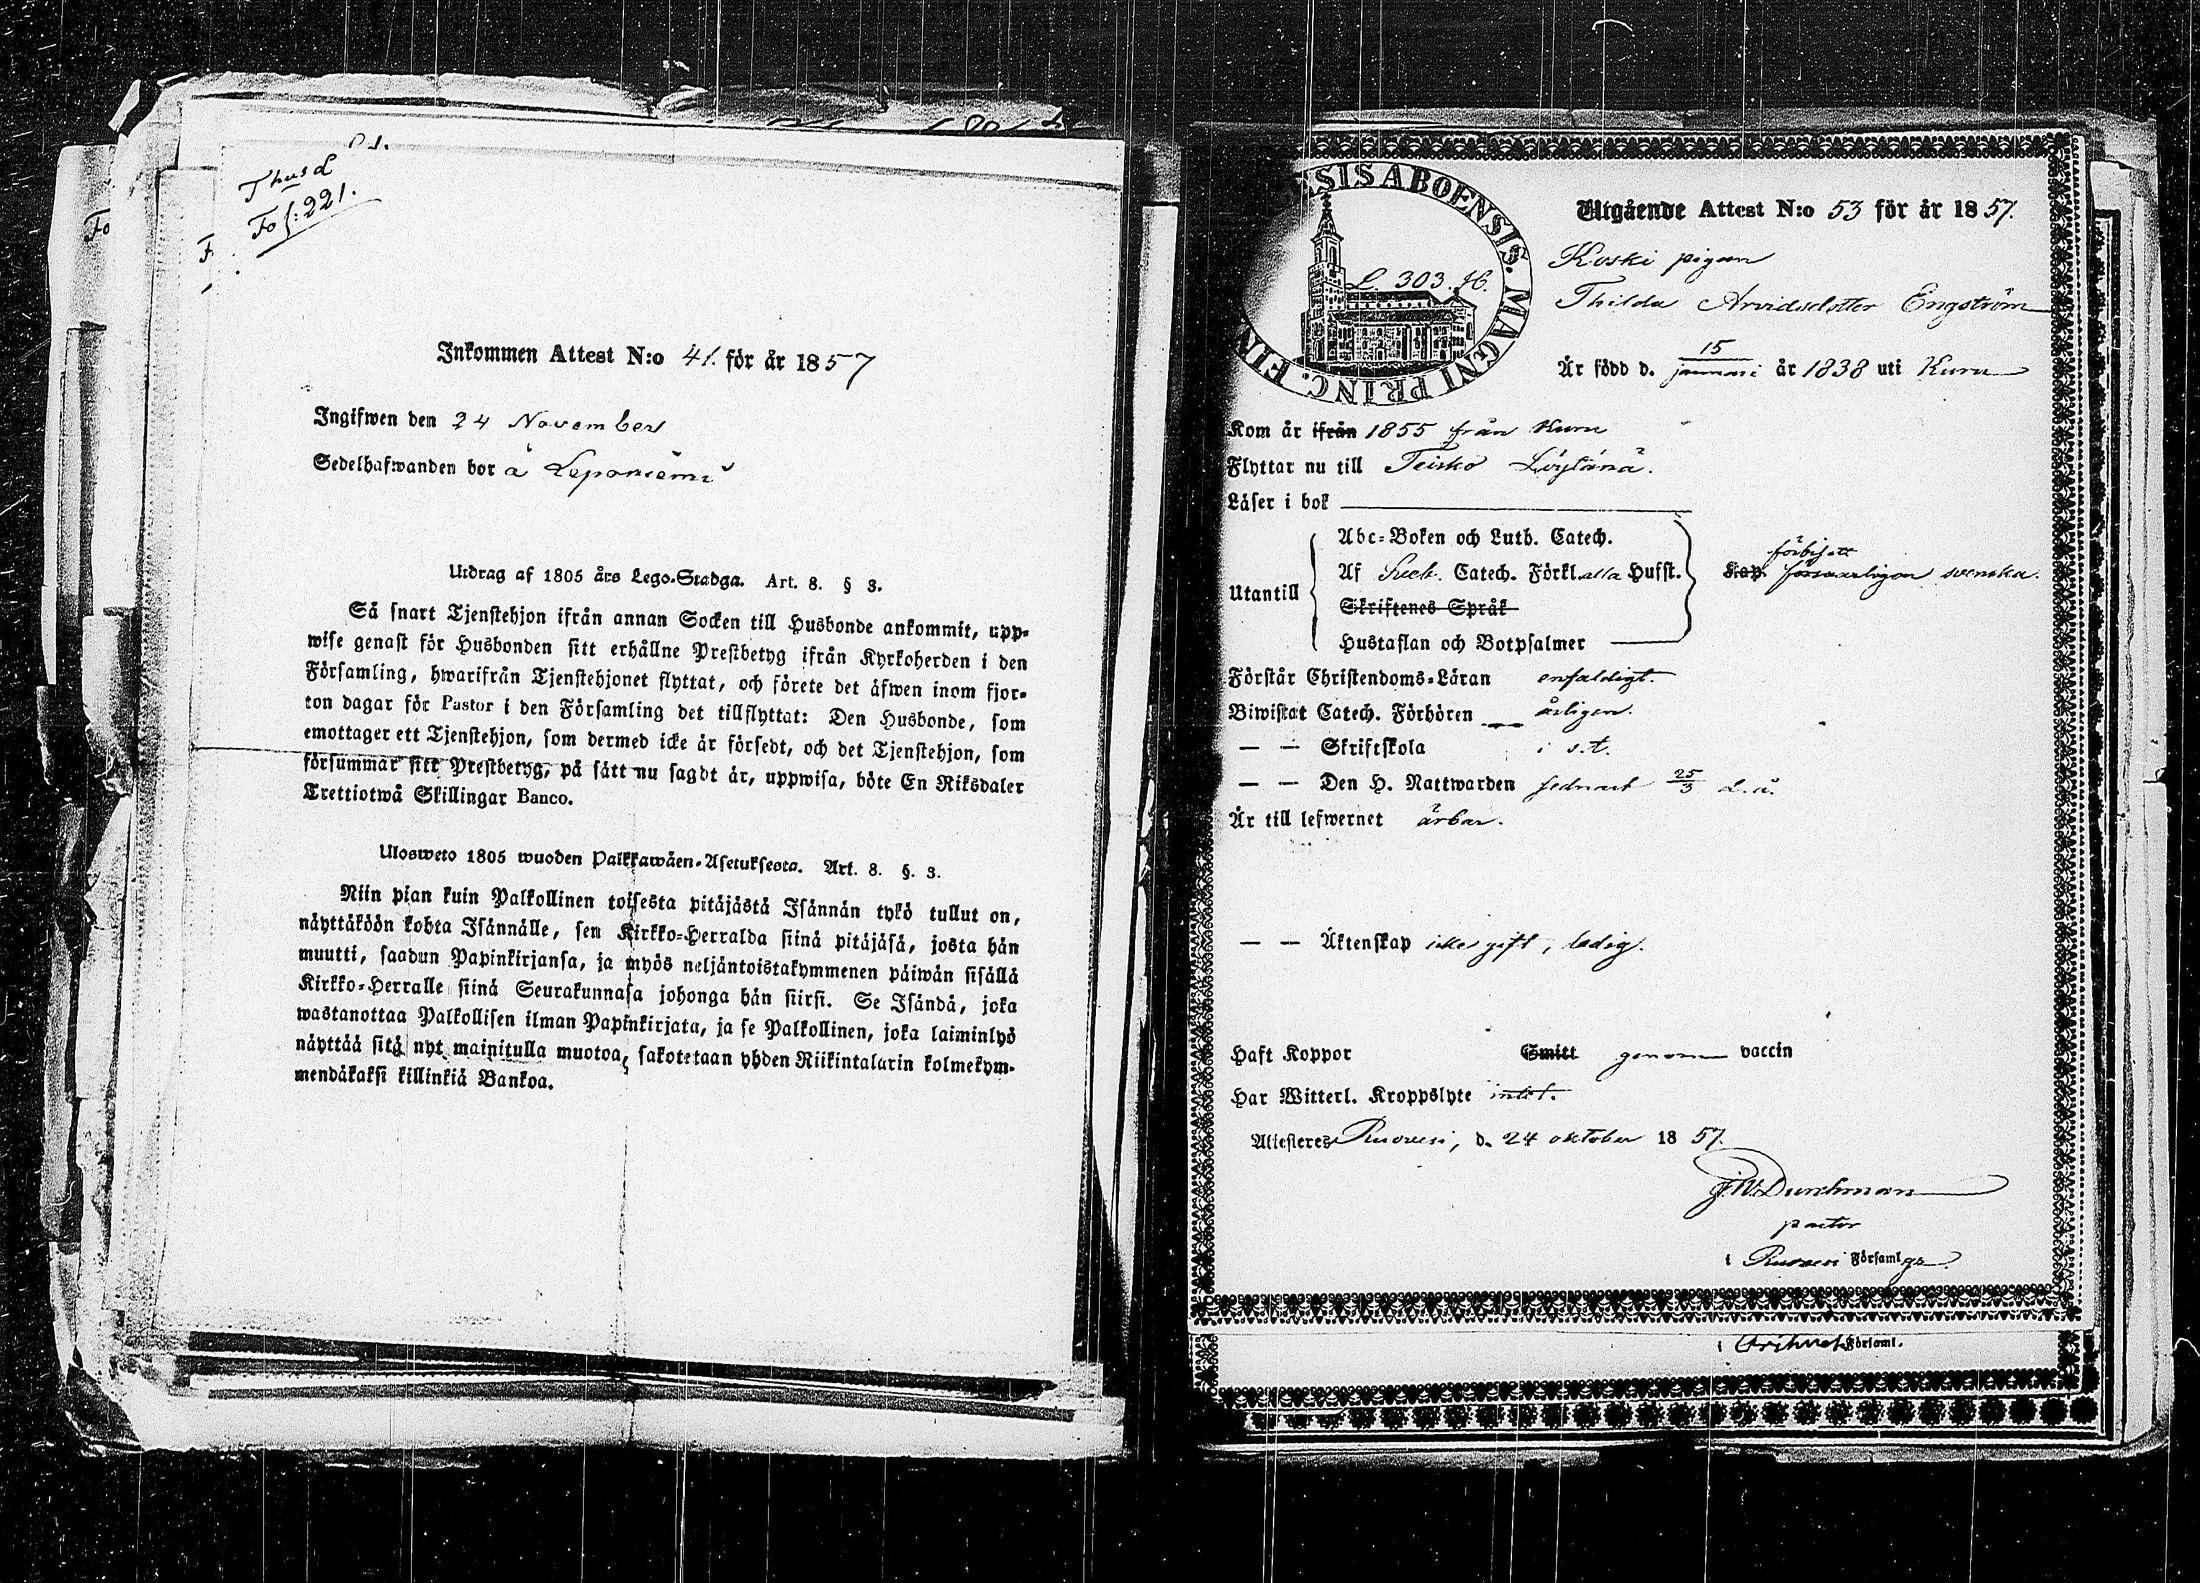 Thusd
Fol: 221.
Inkommen Attest N:o 41. för år 1857
Ingifwen den 24 November
Sedelhafwanden bor å Leponiemi
Utdrag af 1805 års Lego-Stadga. Art. 8. § 3.
Så snart Tjenstehjon ifrån annan Socken till Husbonde ankommit, upp-
wise genast för Husbonden sitt erhållne Prestbetyg ifrån Kyrkoherden i den
Församling, hwarifrån Tjenstehjonet flyttat, och förete det äfwen inom fjor-
ton dagar för Pastor i den Församling det tillflyttat: Den Husbonde, som
emottager ett Tjenstehjon, som dermed icke är försedt, och det Tjenstehjon, som
försummar sitt Prestbetyg, på sätt nu sagdt är, uppwisa, böte En Riksdaler
Trettiotwå Skillingar Banco.
Ulosweto 1805 wuoden Palkkawäen-Asetuksesta. Art. 8. §. 3.
Niin pian kuin Palkollinen toisesta pitäjästä Isännän tykö tullut on,
näyttäköön kohta Isännälle, sen Kirkko-Herralda siinä pitäjäsä, josta hän
muutti, saadun Papinkirjansa, ja myös neljäntoistakymmenen päiwän sisällä
Kirkko-Herralle siinä Seurakunnasa johonga hän siirsi. Se Isändä, joka
wastanottaa Palkollisen ilman Papinkirjata, ja se Palkollinen, joka laiminlyö
näyttää sitä nyt mainitulla muotoa, sakotetaan yhden Riikintalarin kolmekym-
mendäkaksi killinkiä Bankoa.
SIS ABOENSIS. MAGNI PRINC. FIN
L. 303. H.
Utgående Attest N:o 53 för år 1857.
Koski pigan
Thilda Arvidsdotter Engström
Är född d. 15 januari år 1838 uti Kuru
Kom år ifrån 1855 från Kuru
Flyttar nu till Teisko Löytänä.
Läser i bok
Abc-Boken och Luth. Catech.
Utantill Af Sveb. Catech. Förkl. alla Husst.
Skriftenes Språk
Hustaflan och Botpsalmer
svenska.
Förstår Christendoms-Läran enfaldigt.
Biwistat Catech. Förhören årligen.
— — Skriftskola i s.t.
— — Den H. Nattwarden sednast 25/3 d.å.
Är till lefwernet ärbar.
— — Äktenskap icke gift, ledig.
Haft Koppor Smitt genom vaccin
Har Witterl. Kroppslyte intet.
Attesteres Ruovesi, d. 24 oktober 1857.
F.W. Durchman
pastor
i Ruovesi Församlga.
i Församl.